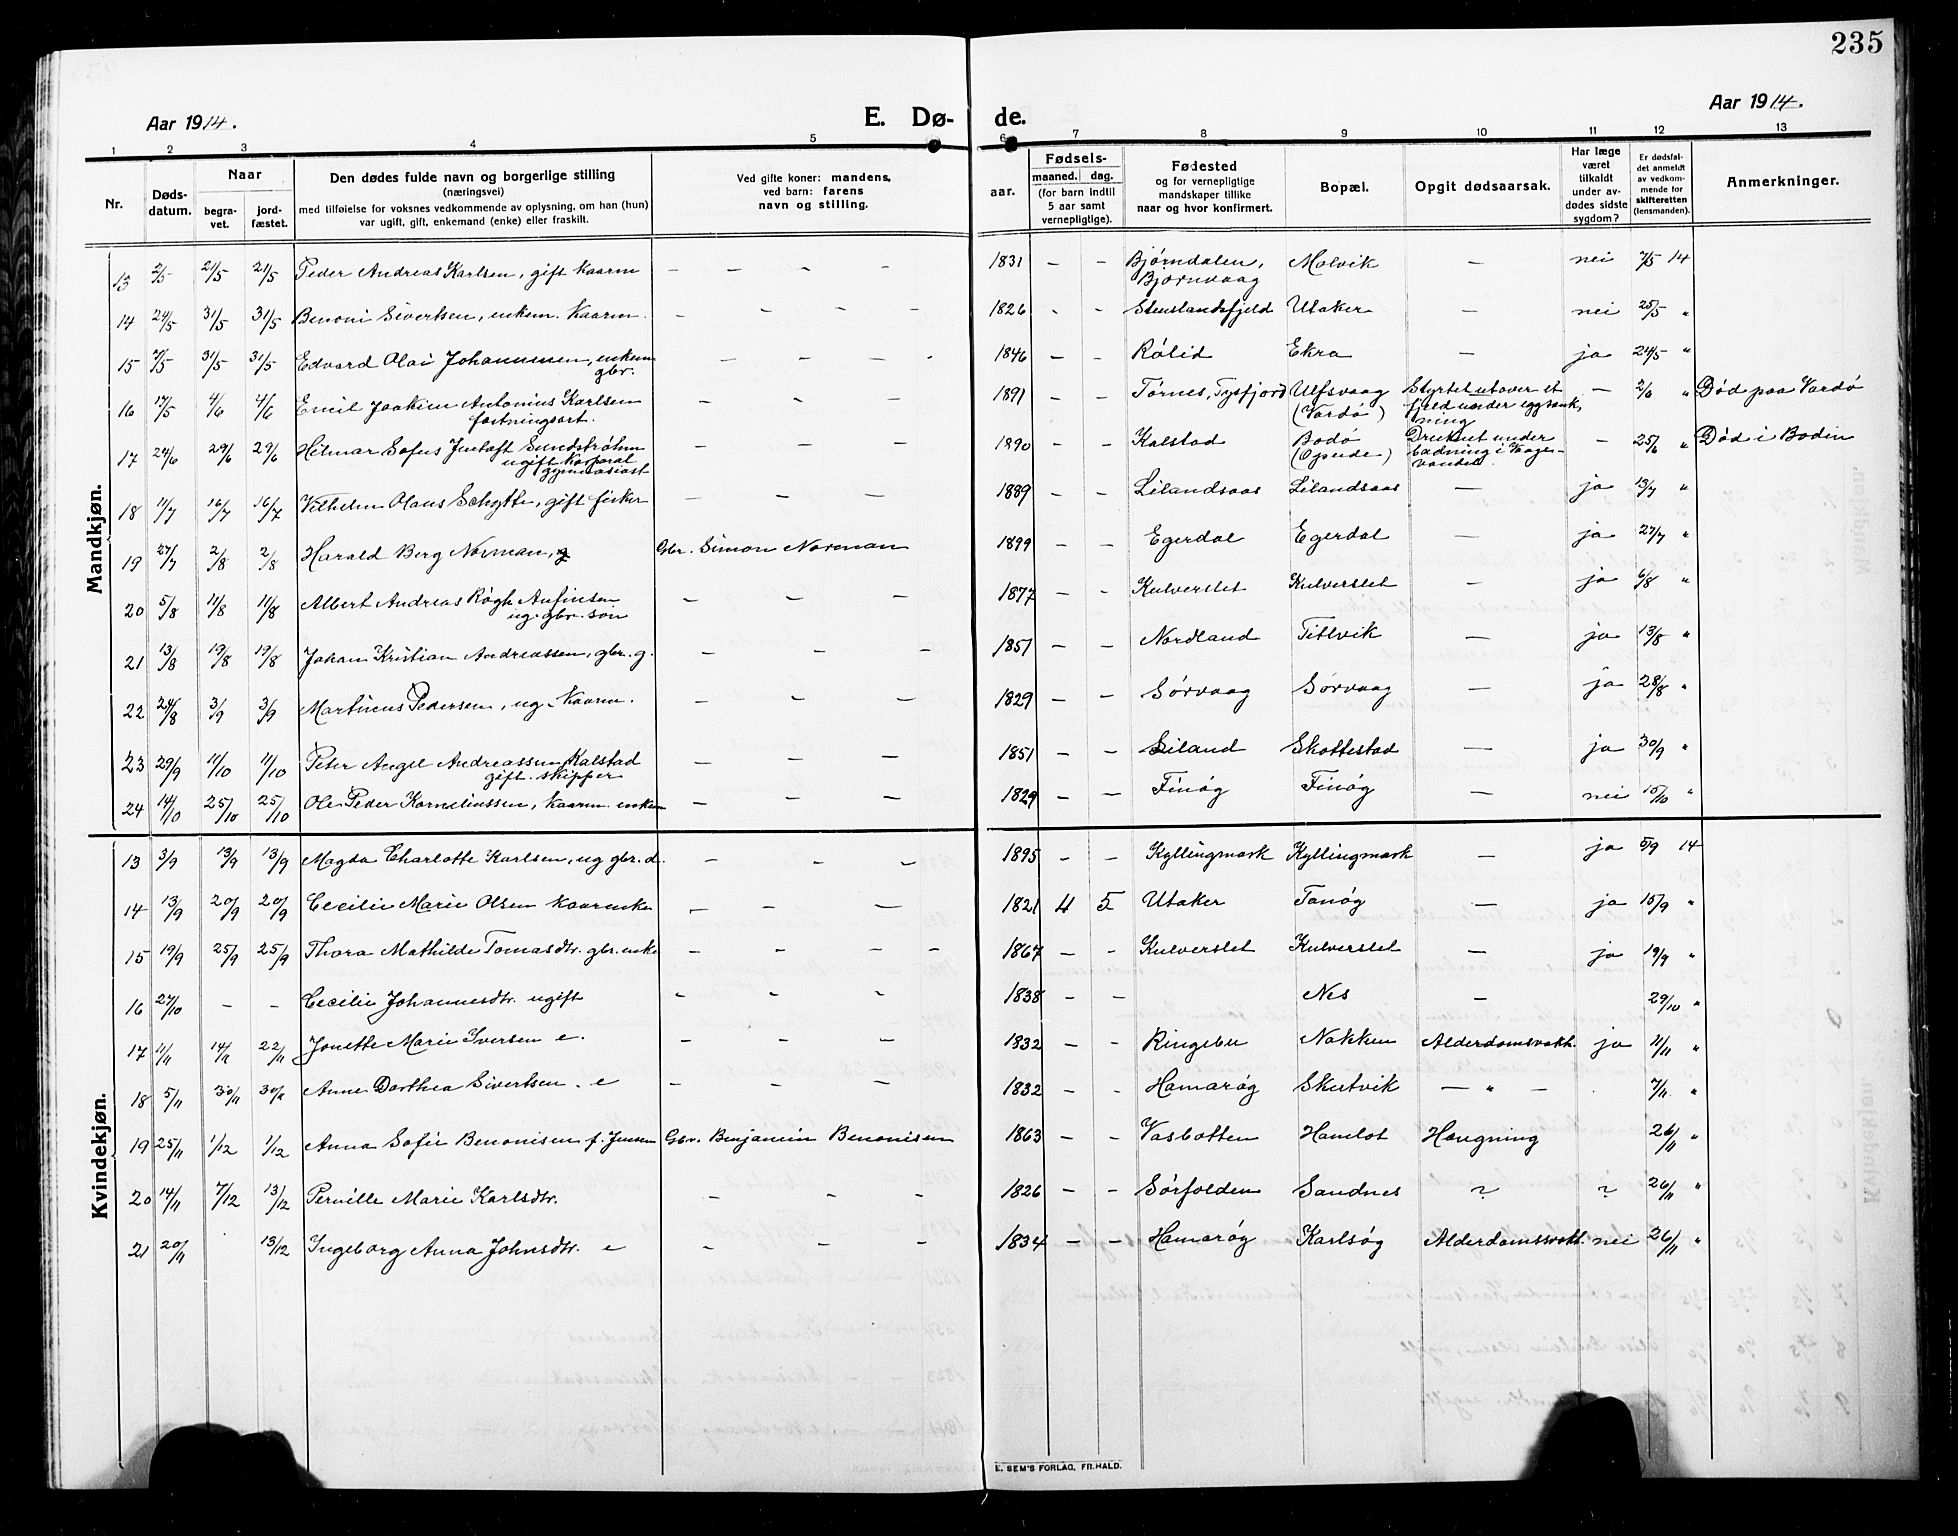 235
Aar 1914.
E. Dø- de.
Aar 1914.
1 2 3 4 5 6 7 8 9 10 11 12 13
Nr.
Døds-
datum.
Naar
begra-
vet.
jord-
fæstet.
Den dødes fulde navn og borgerlige stilling
(næringsvei)
med tilføielse for voksnes vedkommende av oplysning, om han (hun)
var ugift, gift, enkemand (enke) eller fraskilt.
Ved gifte koner: mandens,
ved barn: farens
navn og stilling.
aar.
Fødsels-
maaned. dag.
(for barn indtil
5 aar samt
vernepligtige).
Fødested
og for vernepligtige
mandskaper tillike
naar og hvor konfirmert.
Bopæl.
Opgit dødsaarsak.
Har læge
været
tilkaldt
under av-
dødes sidste
sygdom?
Er dødsfal-
det anmeldt
av vedkom-
mende for
skifteretten
(lensmanden).
Anmerkninger.
Mandkjøn.
13 2/5 21/5 21/5 Peder Andreas Karlsen, gift kaarm — — — — 1831 — — Bjørndalen, Molvik — nei 7/5 14
Bjørnvaag
14 24/5 31/5 31/5 Benoni Sivertsen, enkem. kaarm. — — — — 1826 - - Stenslandsfjeld Utaker — nei 25/5 "
15 7/5 31/5 31/5 Edvard Olai Johannessen, enkem — — — - 1846 — - Rølid Ekra — ja 24/5 "
gbr.
16 17/5 4/6 4/6 Emil Joakim Antonius Karlsen — — — 1891 — — Tørnes, Tysfjord Ulfsvaag Styrtet utover et — 2/6 " Død paa Vardø
fæstningsart. (Vardø) fjeld under eggsank-
ning
17 24/6 29/6 29/6 Helmar Sofus Justaft Sundstrøhm — — — 1890 — — Kalstad Bodø Druknet under — 25/6 " Død i Bodin
ugift korporal (Opeide) badning i Vaage-
gymnasiast vandet.
18 11/7 16/7 16/7 Vilhelm Olaus Schytte, gift fisker — — — 1889 — — Lilandsaas Lilandsaas — ja 13/7 "
19 27/7 2/8 2/8 Harald Berg Norman, Gbr. Simon Norman 1899 — — Egerdal Egerdal — ja 27/7 "
20 5/8 11/8 11/8 Albert Andreas Røgh Anfinsen — — — 1877 — — Kulverslet Kulverslet — ja 6/8 "
ug. gbr. søn
21 13/8 19/8 19/8 Johan Kristian Andreassen, gbr. g. — — — 1857 — — Nordland Titlvik — ja 13/8 "
22 24/8 3/9 3/9 Martinus Pedersen, ug. kaarm. — — — 1829 — — Sørvaag Sørvaag — ja 28/8 "
23 29/9 11/10 11/10 Peter Angel Andreassen Kalstad — — — 1851 — — Liland Skottestad — ja 30/9 "
gift. skipper
24 14/10 25/10 25/10 Ole Peder Korneliussen, kaarm. enkem — — — 1829 — — Finøg Finøg — nei 15/10 "
Kvindekjøn.
13 3/9 13/9 13/9 Magda Charlotte Karlsen, ug gbr. d. — — — 1895 — — Kyllingmark Kyllingmark — ja 5/9 14
14 13/9 20/9 20/9 Cecilie Marie Olsen kaarenke — — — 1821 4 5 Utaker Tanøg — ja 15/9 "
15 19/9 25/9 25/9 Thora Mathilde Tomasdtr. gbr. enke — - — — 1867 — - Kulverslet Kulverslet — ja 19/9 "
16 27/10 - - Cecilie Johannesdtr. ugift - - - 1838 — — Nes — 29/10 "
17 4/11 14/11 22/11 Jonette Marie Iversen e. — — — 1832 — — Ringebu Nakken Alderdomsvakh. ja 11/11 "
18 5/11 30/11 30/11 Anne Dorthea Sivertsen. e — — — 1832 — - Hamarøg Skutvik — " — 7/11. "
19 25/11 1/12 1/12 Anna Sofie Benonisen f. Jensen Gbr. Benjamin Benonisen 1863 — — Vasbotten Hamlot Hængning 26/11 "
20 14/11 7/12 13/12 Pernille Marie Karlsdtr. — — — 1826 — — Sørfolden Sandnes ? ? 26/11 "
21 20/11 13/12 Ingeborg Anna Johnsdtr. e — — — 1834 — — Hamarøg Karlsøg Alderdomssvakh. nei 26/11 "
E. SEM'S FORLAG, FR.HALD.